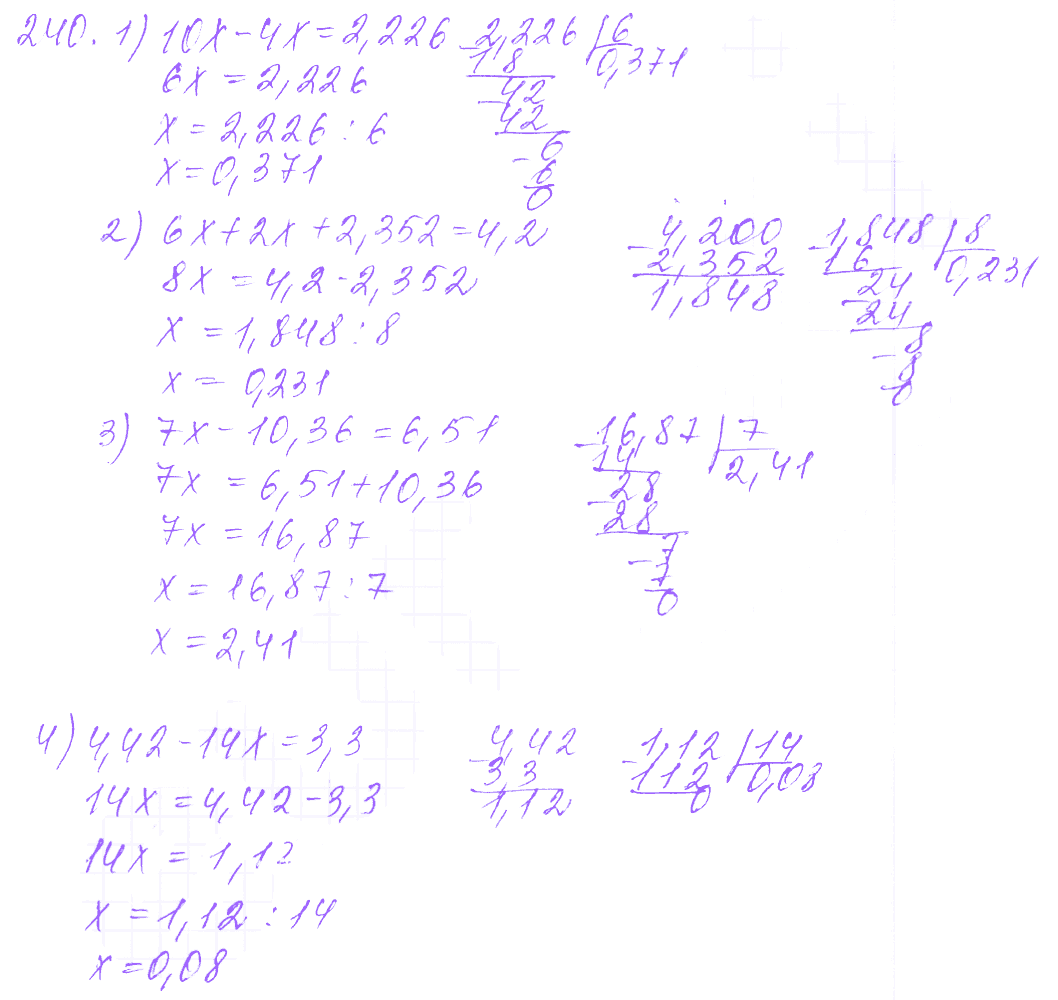 240. 1) 10x - 4x = 2,226
6x = 2,226
x = 2,226 : 6
x = 0,371
- 2,226 | 6
18 0,371
- 42
42
- 6
6
0
2) 6x + 2x + 2,352 = 4,2
8x = 4,2 - 2,352
x = 1,848 : 8
x = 0,231
- 4,200
2,352
1,848
- 1,848 | 8
16 0,231
- 24
24
- 8
8
0
3) 7x - 10,36 = 6,51
7x = 6,51 + 10,36
7x = 16,87
x = 16,87 : 7
x = 2,41
- 16,87 | 7
14 2,41
- 28
28
- 7
7
0
4) 4,42 - 14x = 3,3
14x = 4,42 - 3,3
14x = 1,12
x = 1,12 : 14
x = 0,08
- 4,42
3,3
1,12
- 1,12 | 14
112 0,08
0